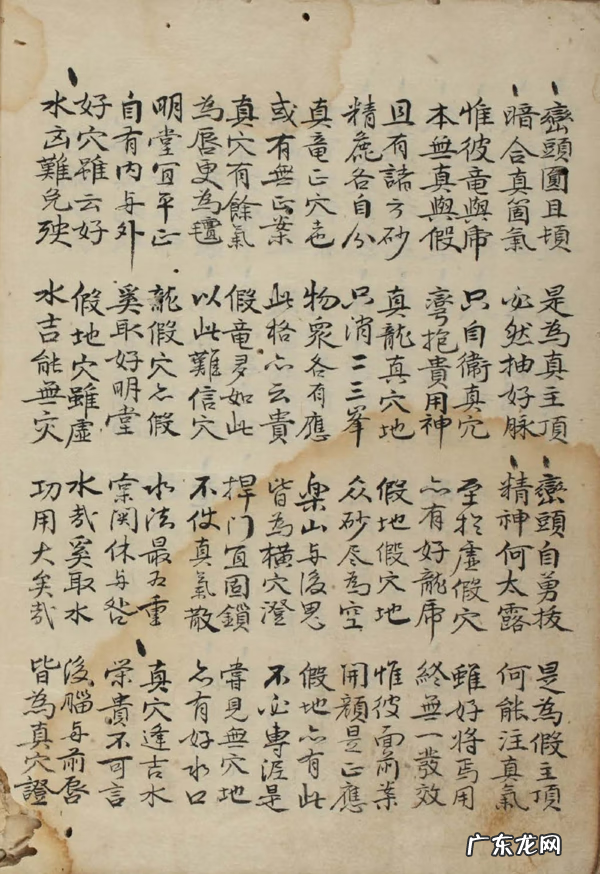 巒頭圓且頓 是為真主頂 巒頭自勇拔 是為假主項
暗合真箇氣 必然抽好脉 精神何太露 何能注真氣
惟彼竜與虎 只自衛真穴 至於虛假穴 雖好將焉用
本無真與假 彎抱貴用神 亦有好龍虎 終無一發效
且有諸方砂 真龍真穴地 假地假穴地 惟彼面前案
精麁各自分 只消二三峯 众砂尽為空 開顔是正應
真竜正穴 物眾各有應 樂山与後鬼 假地亦有此
或有無正案 此格亦云貴 皆為橫穴證 不必專泥是
真穴有餘氣 假竜多如此 捍门宜固鎖 嘗見無穴地
為唇更為氈 以此難信穴 不使真氣散 亦有好水口
明堂宜平正 龍假穴亦假 水法最為重 真穴逢吉水
自有内与外 奚取好明堂 関休与咎 榮貴不可言
好穴雖云好 假地穴雖虛 水哉奚取水 後腦与前唇
水凶難免殃 水吉能無灾 功用大矣哉 皆為真穴證
广东龙网